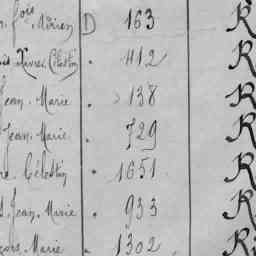 fois Adrien D 163 R
Xavier Célestin . 412 R
Jean. Marie . 138 R
Jean. Marie . 729 R
Célestin . 1651 R
Jean. Marie . 933 R
Marie . 1302 R